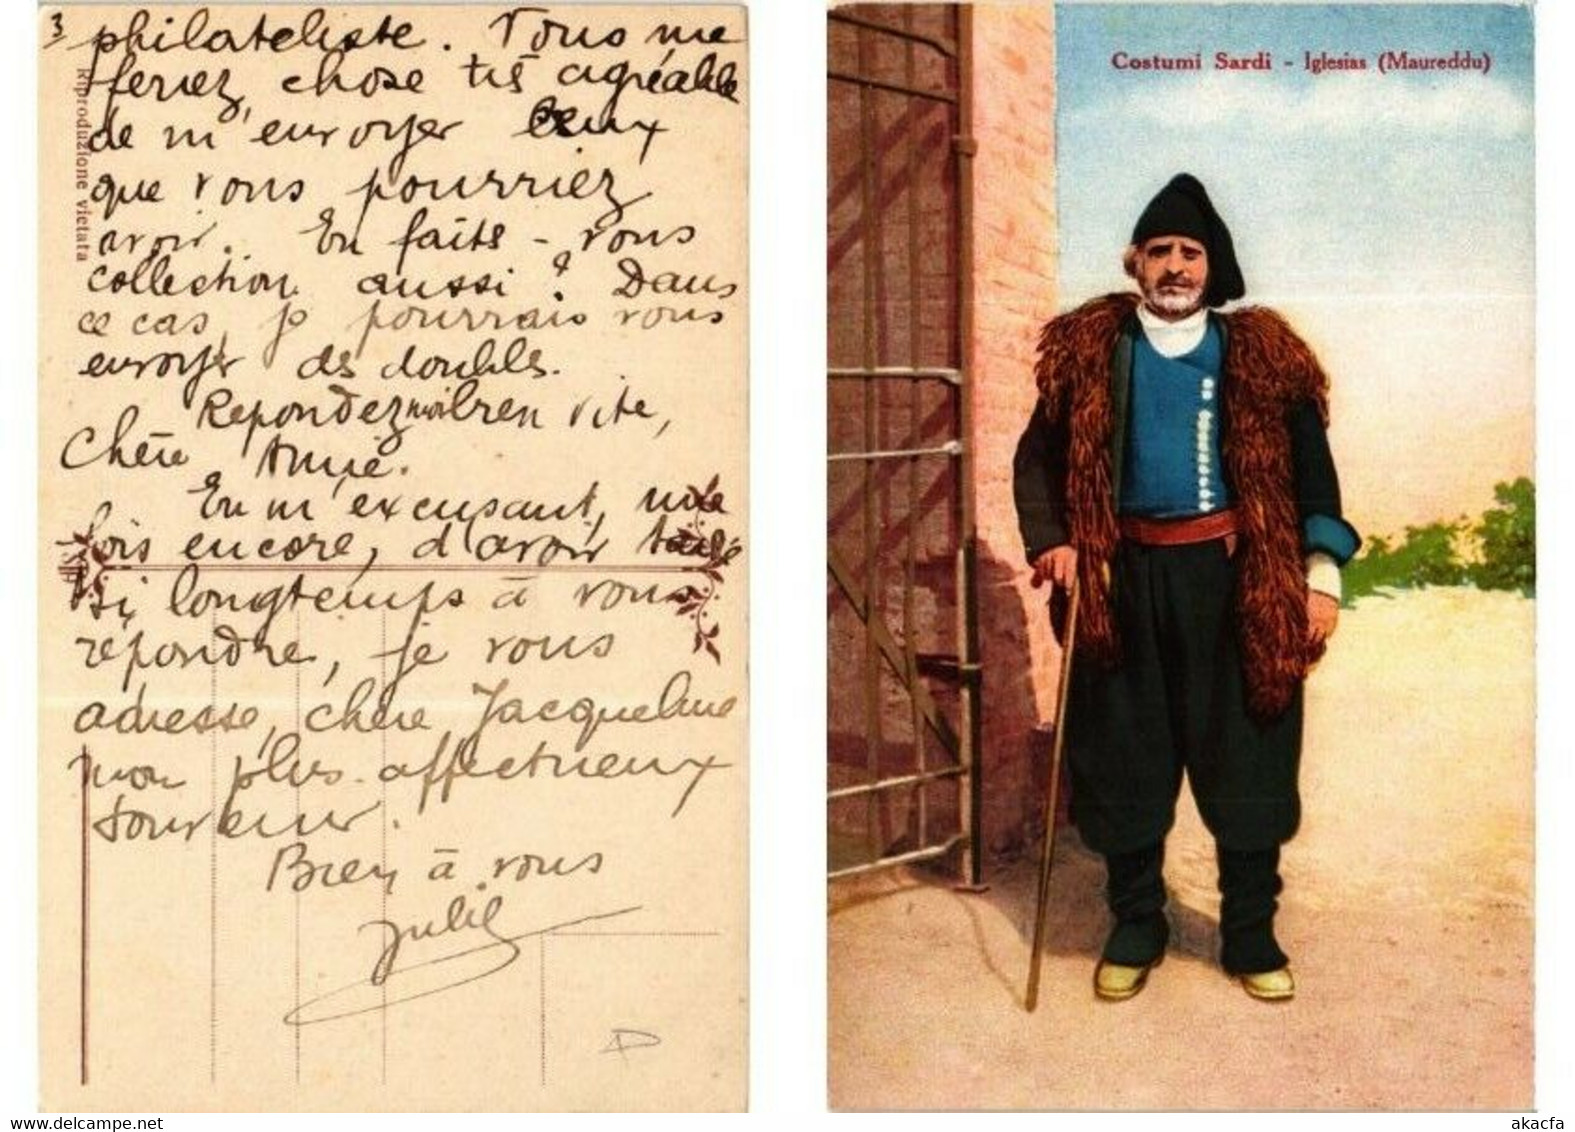 3
philateliste. Vous me
feriez, chose très agréable
de m'envoyer ceux
que vous pourriez
avoir. En faits-vous
collection aussi? Dans
ce cas, je pourrais vous
envoyer des doubles.
Repondez moi bien vite,
Chère Amie.
En m'excusant, une
fois encore, d'avoir tardé
si longtemps à vous
répondre, je vous
adresse, chère Jacqueline
mon plus affectueux
souvenir.
Bien à vous
Riproduzione vietata
Costumi Sardi - Iglesias (Maureddu)
akacfa